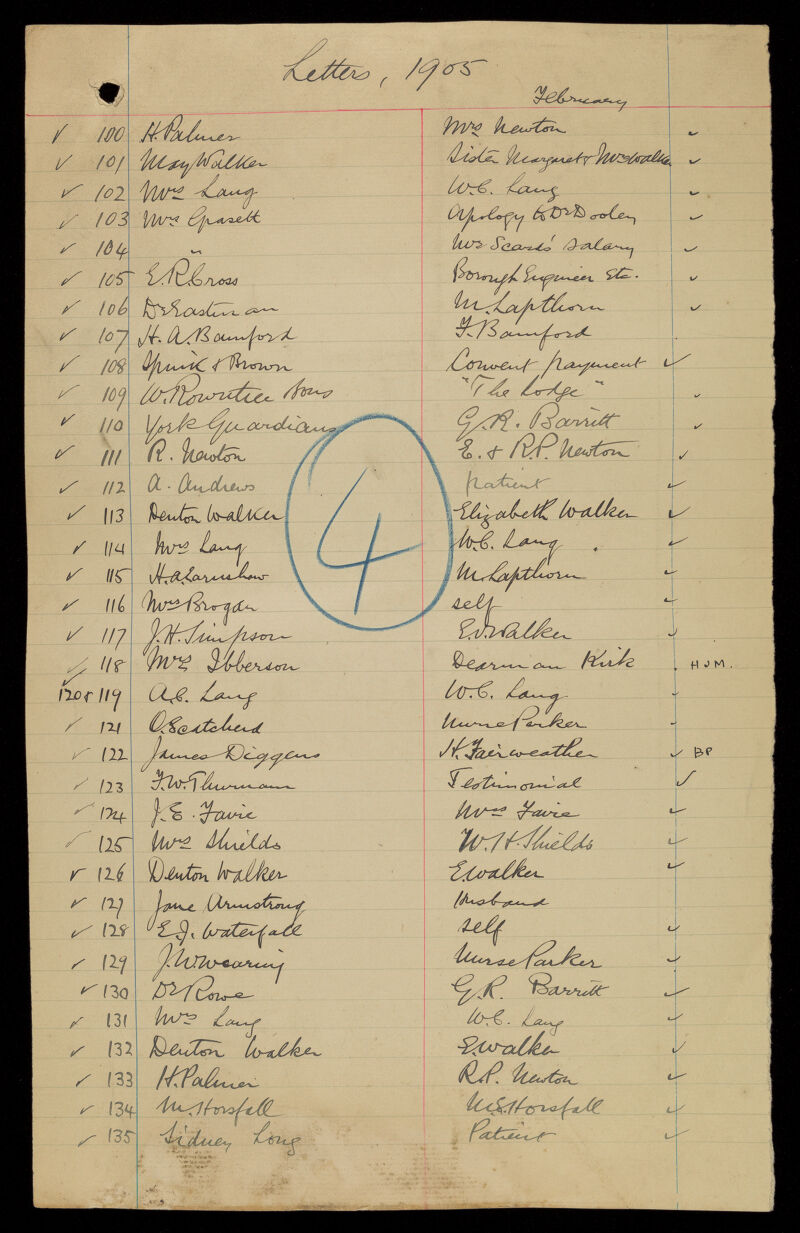 Letters, 1905
February
✓ 100 H. Palmer Mrs Newton ✓
✓ 101 May Walker Sister Margaret & Mrs Walker ✓
✓ 102 Mrs Lang W.C. Lang ✓
✓ 103 Mrs Grasett Apology to Dr Dooley ✓
✓ 104 " Mrs Scard's salary ✓
✓ 105 E.R. Cross Borough Engineer Etc. ✓
✓ 106 Dr Eastman M. Lapthorn ✓
✓ 107 H.A. Bamford F. Bamford
✓ 108 Spink & Brown Convent payment ✓
✓ 109 W. Rowntree Sons "The Lodge" ✓
✓ 110 York Guardians G.R. Barritt ✓
✓ 111 R. Newton E. & R.P. Newton ✓
✓ 112 A. Andrews patient ✓
✓ 113 Denton Walker Elizabeth Walker ✓
✓ 114 Mrs Lang W.C. Lang ✓
✓ 115 H.A. Earnshaw M. Lapthorn ✓
✓ 116 Mrs Brogan self ✓
✓ 117 J.H. Simpson E.V. Walker ✓
✓ 118 Mrs Ibberson Dearman Kirk HJM.
✓ 120 & 119 A.C. Lang W.C. Lang ✓
✓ 121 O. Scatcherd Nurse Parker ✓
✓ 122 James Diggens H. Fairweather ✓ BP
✓ 123 F.W. Thurman Testimonial ✓
✓ 124 J.E. Favie Mrs Favie ✓
✓ 125 Mrs Shields W.H. Shields ✓
✓ 126 Denton Walker E. Walker ✓
✓ 127 Jane Armstrong Husband
✓ 128 E.J. Waterfall self ✓
✓ 129 J.W. Wearing Nurse Parker ✓
✓ 130 Dr Rowe G.R. Barritt ✓
✓ 131 Mrs Lang W.C. Lang ✓
✓ 132 Denton Walker E. Walker ✓
✓ 133 H. Palmer R.P. Newton ✓
✓ 134 M. Horsfall M.E. Horsfall ✓
✓ 135 Sidney Long Patient ✓
4